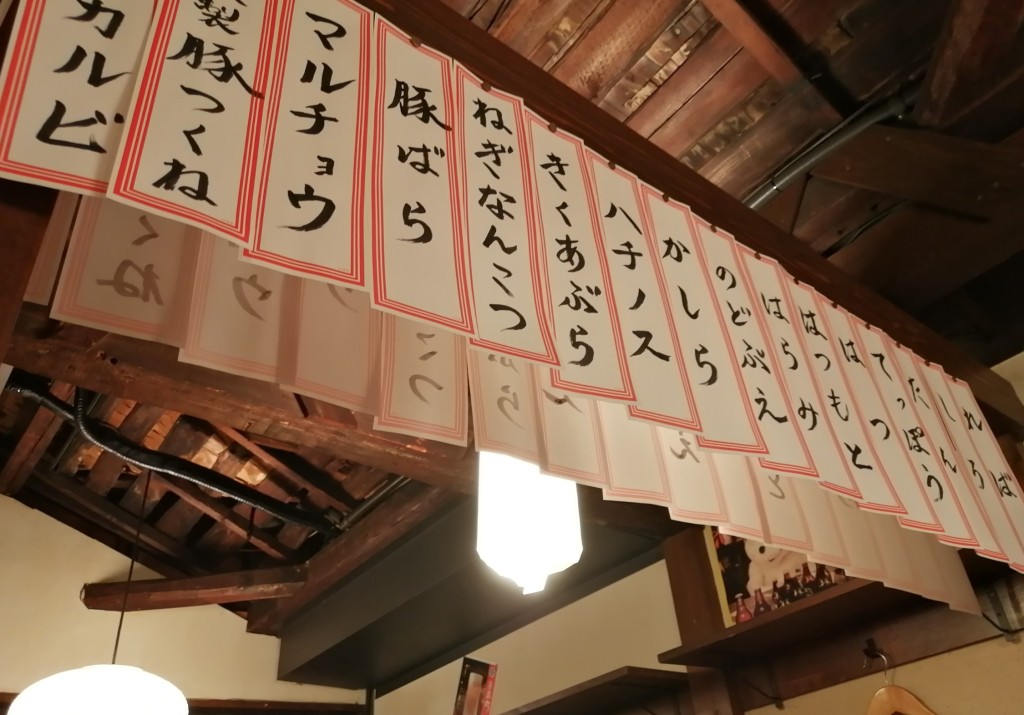 れば
しろ
たん
てっぽう
はつ
はつもと
はらみ
のどぶえ
かしら
ハチノス
きくあぶら
ねぎなんこつ
豚ばら
マルチョウ
製豚つくね
カルビ